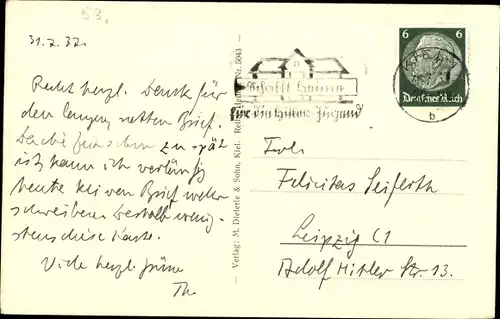 53.
31.7.37.
Recht herzl. Dank für
den langen netten Brief.
zu spät
ist, kann ich
heute keinen Brief mehr
schreiben. Deshalb wenig-
stens diese Karte.
Viele herzl. Grüsse
Th.
Verlag: M. Dieterle & Sohn, Kiel.
Nr. 5043
Schafft Heime
für die Hitler-Jugend
6 6
Deutsches Reich
b
Frl.
Felicitas Seiferth
Leipzig C1
Adolf Hitler Str. 13.